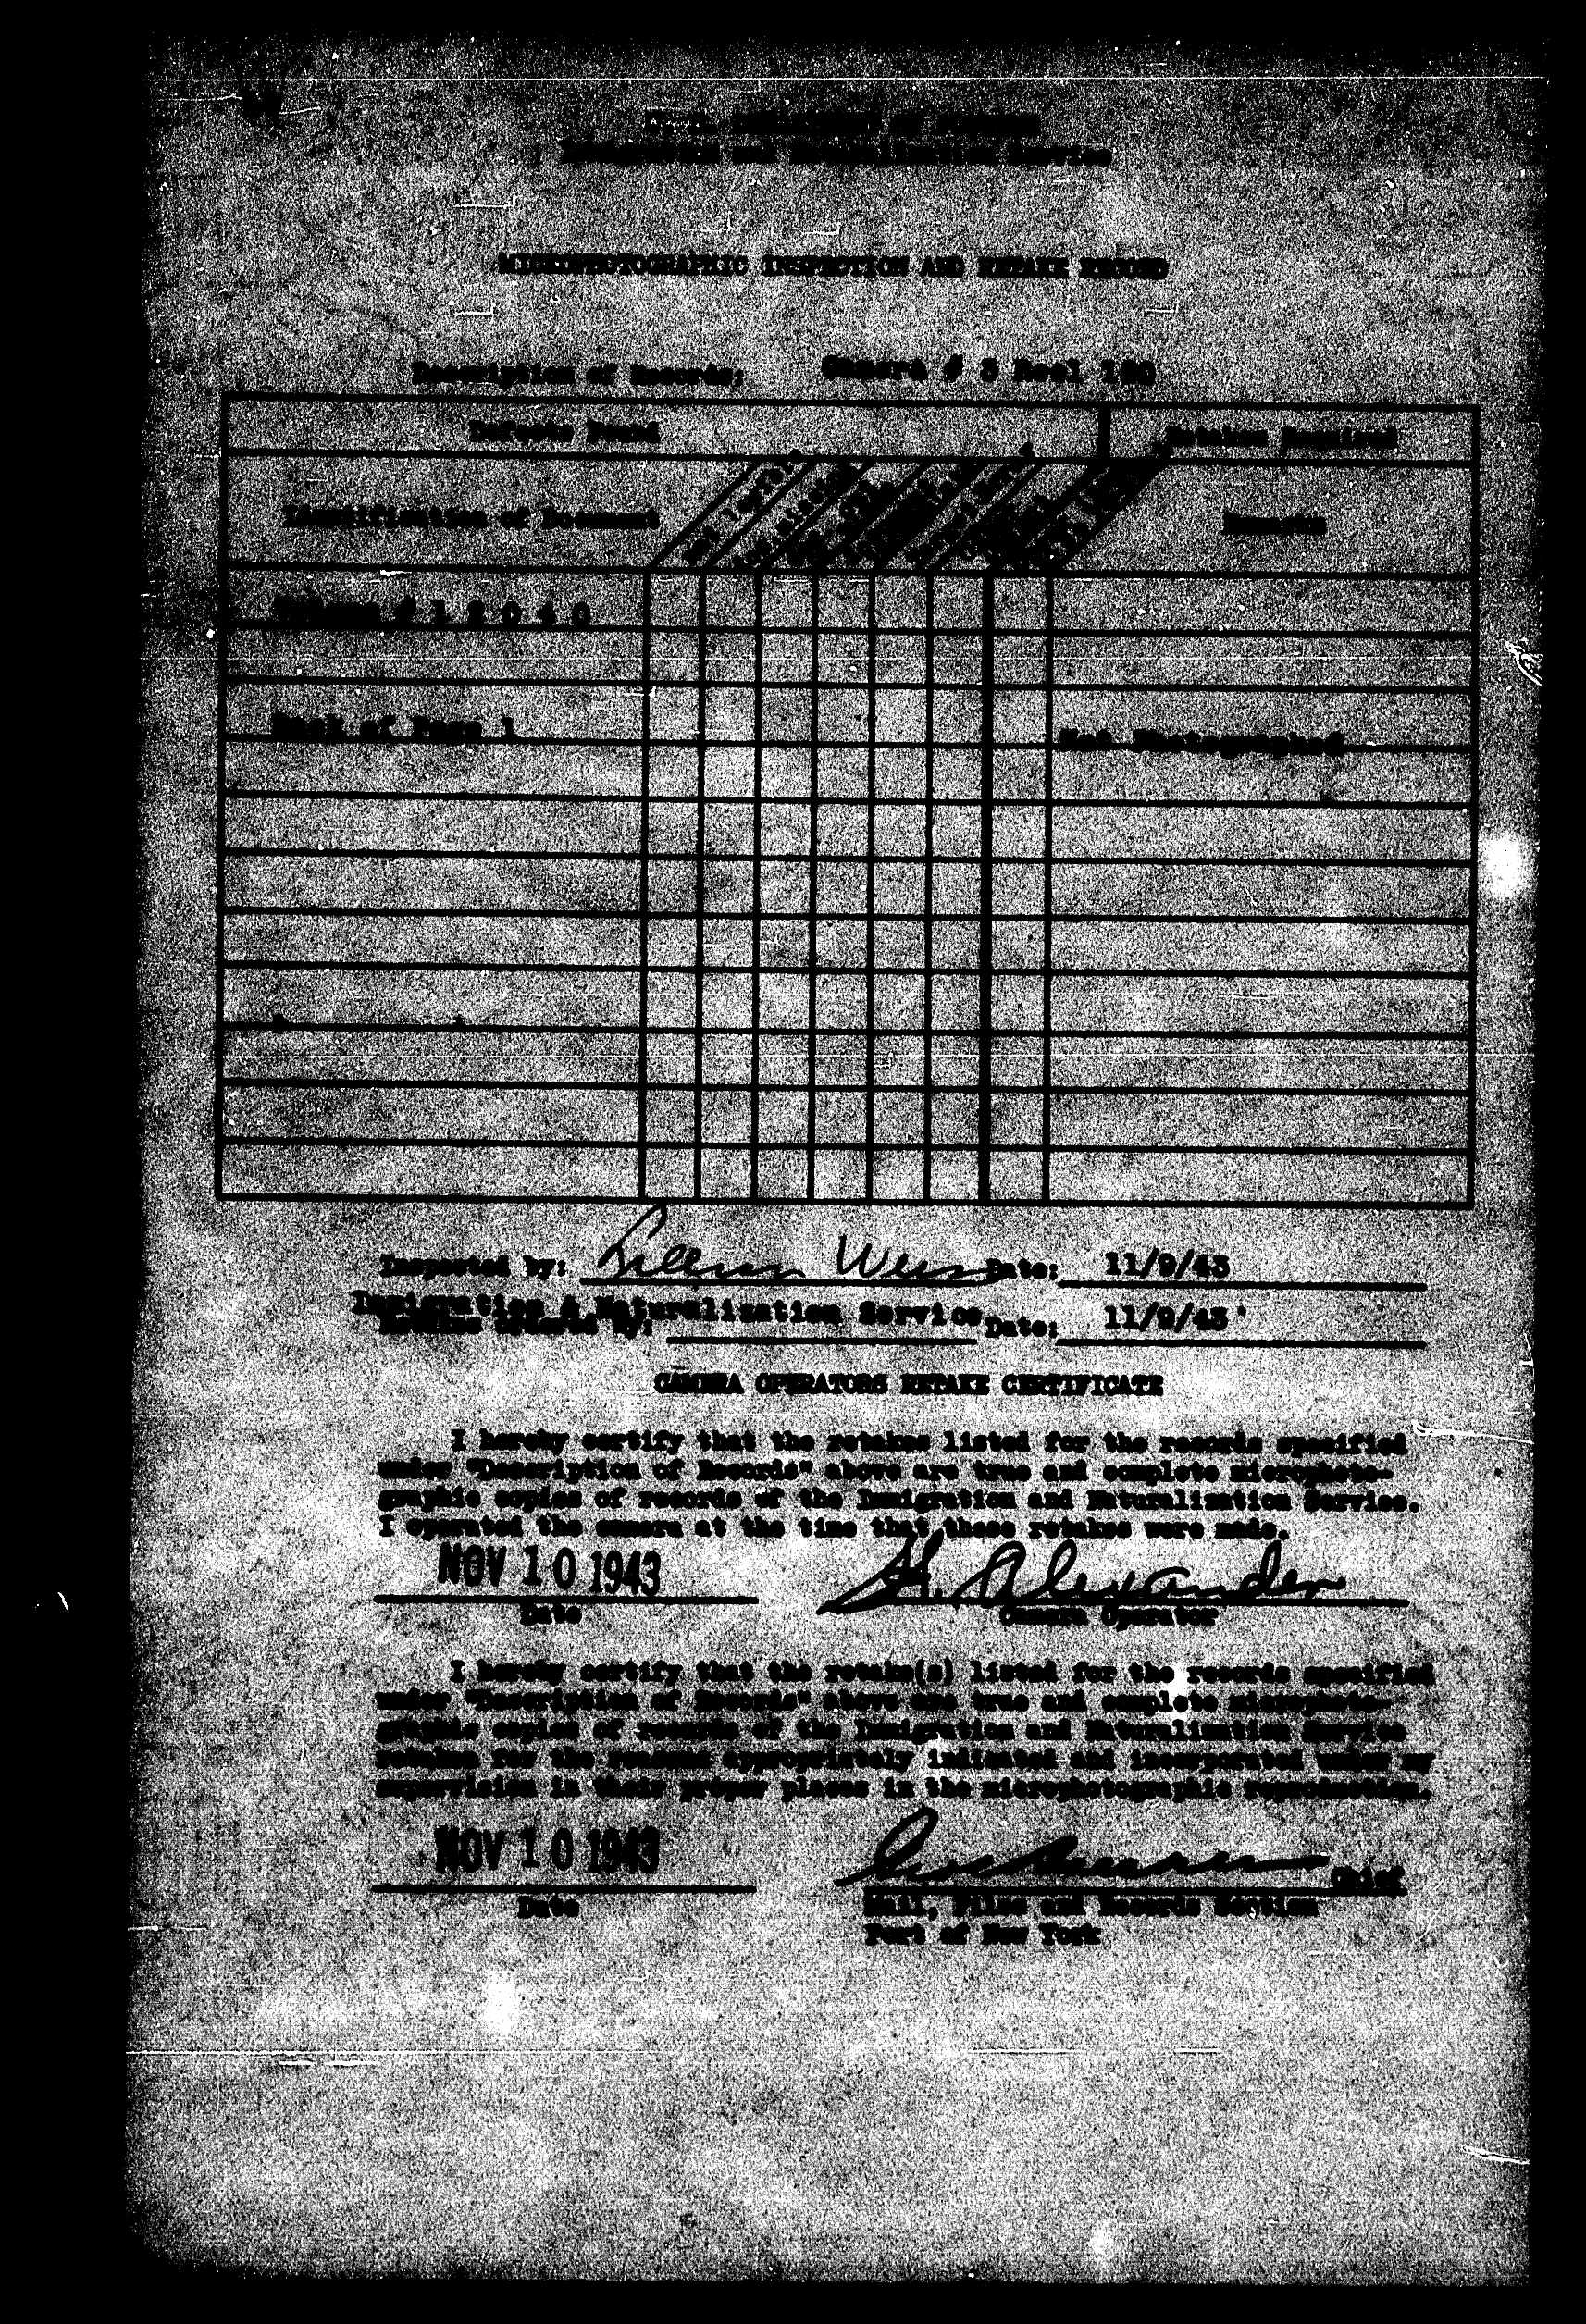 Immigration and Naturalization Service
MICROPHOTOGRAPHIC INSPECTION AND RETAKE RECORD
Description of Records: Camera # 3 Reel
Defects Found Retakes Required
Identification of Document Remarks
Volume #
Back of Page 1 Not Photographed
Inspected by: Lillian Date: 11/9/43
Immigration & Naturalization Service Date: 11/9/43
CAMERA OPERATORS RETAKE CERTIFICATE
I hereby certify that the retakes listed for the records specified
under "Description of Records" above are true and complete microphoto-
graphic copies of records of the Immigration and Naturalization Service.
I operated the camera at the time that these retakes were made.
NOV 10 1943 Alexander
Date Camera Operator
I hereby certify that the retake(s) listed for the records specified
under "Description of Records" above are true and complete microphoto-
graphic copies of records of the Immigration and Naturalization Service
retaken for the reasons appropriately indicated and incorporated under my
supervision in their proper places in the microphotographic reproduction.
NOV 10 1943 Chief
Date Mail, Files and Records Section
Port of New York